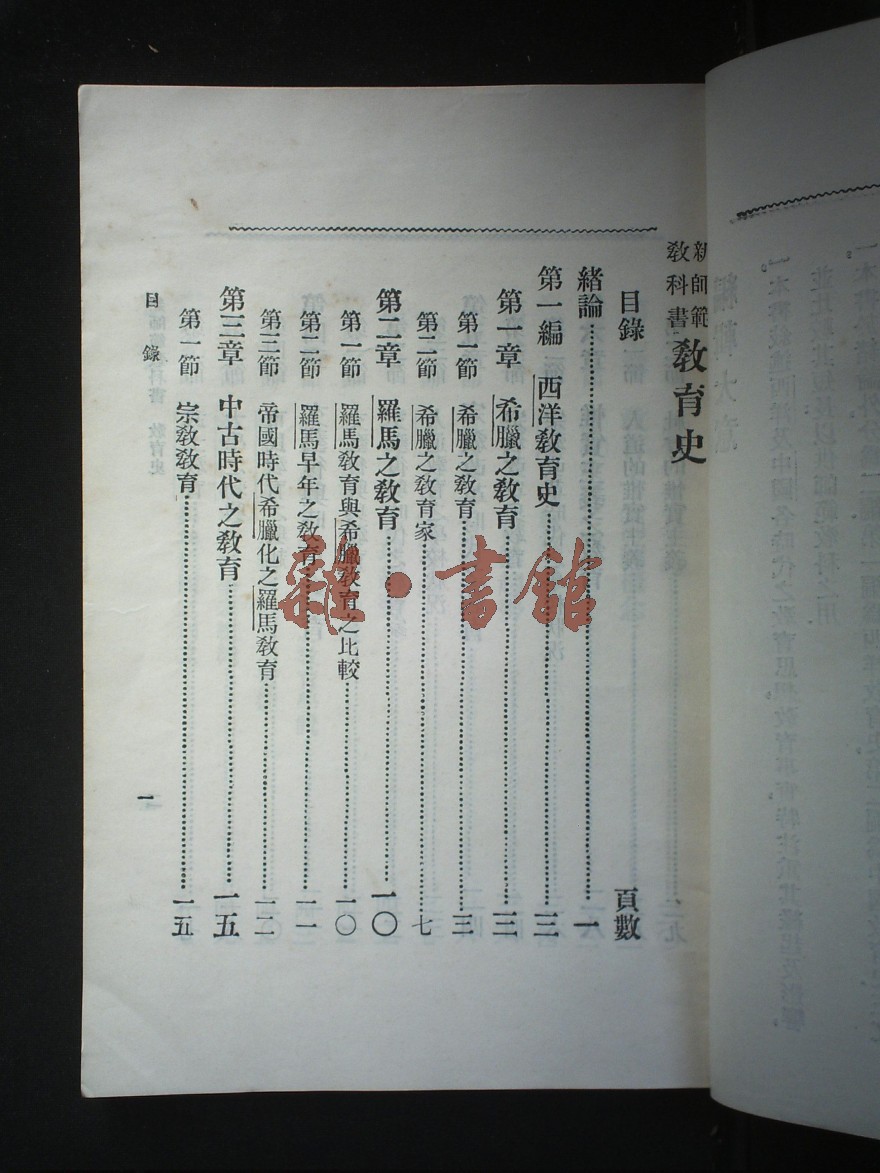 新師範
教科書 敎育史
目錄 頁數
緒論 一
第一編 西洋敎育史 三
第一章 希臘之敎育 三
第一節 希臘之敎育 三
第二節 希臘之敎育家 七
第二章 羅馬之敎育 一〇
第一節 羅馬敎育與希臘敎育之比較 一〇
第二節 羅馬早年之敎育 一一
第三節 帝國時代希臘化之羅馬敎育 一二
第三章 中古時代之敎育 一五
第一節 宗敎敎育 一五
目錄 一
雜·書館